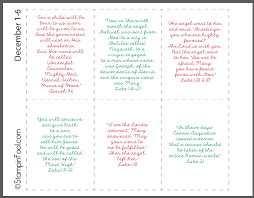 December 1-6
For a child will be
born to us, a son
will be given to us;
And the government
will rest on His
shoulders;
And His name will
be called
Wonderful
Counselor,
Mighty God,
Eternal Father,
Prince of Peace.
Isaiah 9:6
Now in the sixth
month the angel
Gabriel was sent from
God to a city in
Galilee called
Nazareth, to a
virgin engaged
to a man whose name
was Joseph, of the
descendants of David;
and the virgin's name
was Mary.
Luke 1:26-27
The angel went to her
and said, "Greetings,
you who are highly
favored!
The Lord is with you."
But the angel said
to her, "Do not be
afraid, Mary;
you have found
favor with God."
Luke 1:28,30
You will conceive
and give birth
to a son,
and you are to
call him Jesus.
He will be great
and will be called
the Son of the
Most High."
Luke 1:31-32
"I am the Lord's
servant," Mary
answered. "May
your word to
me be fulfilled."
Then the angel
left her.
Luke 1:38
In those days
Caesar Augustus
issued a decree
that a census should
be taken of the
entire Roman world.
Luke 2:1
©StampinFool.com